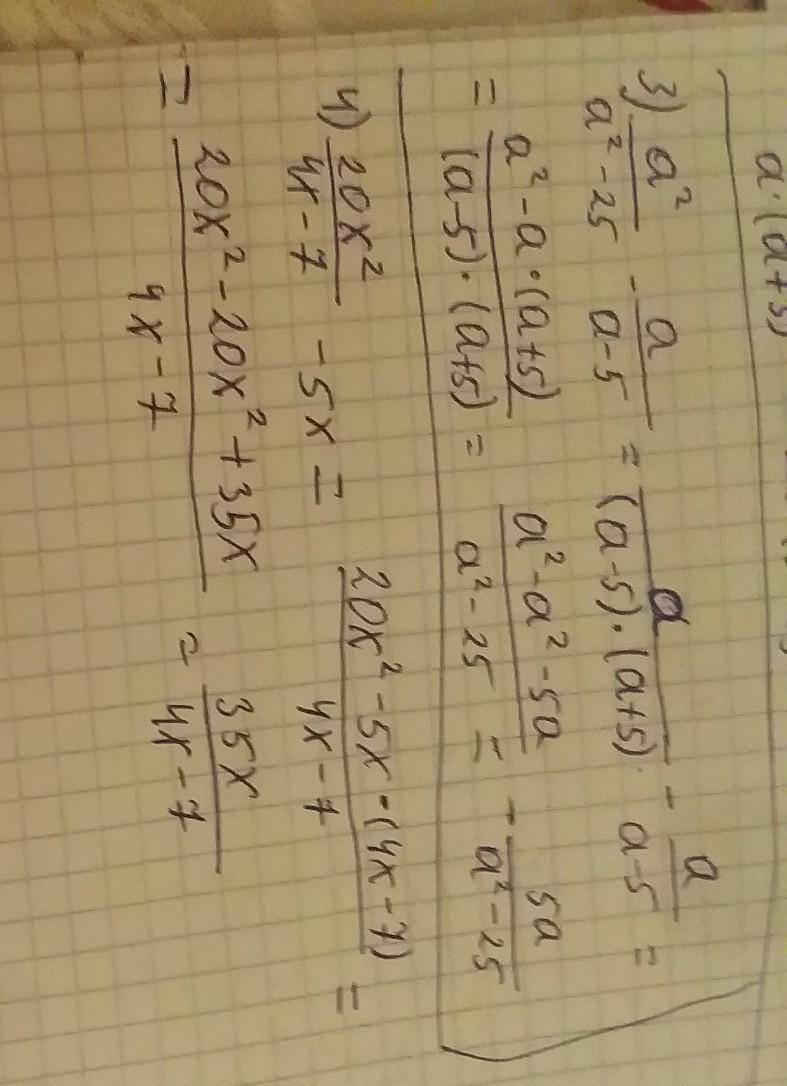 a·(a+5)
3) a²/(a²-25) - a/(a-5) = a/((a-5)·(a+5)) - a/(a-5) =
= (a²-a·(a+5))/((a-5)·(a+5)) = (a²-a²-5a)/(a²-25) = - 5a/(a²-25)
4) 20x²/(4x-7) - 5x = (20x²-5x·(4x-7))/(4x-7) =
= (20x²-20x²+35x)/(4x-7) = 35x/(4x-7)